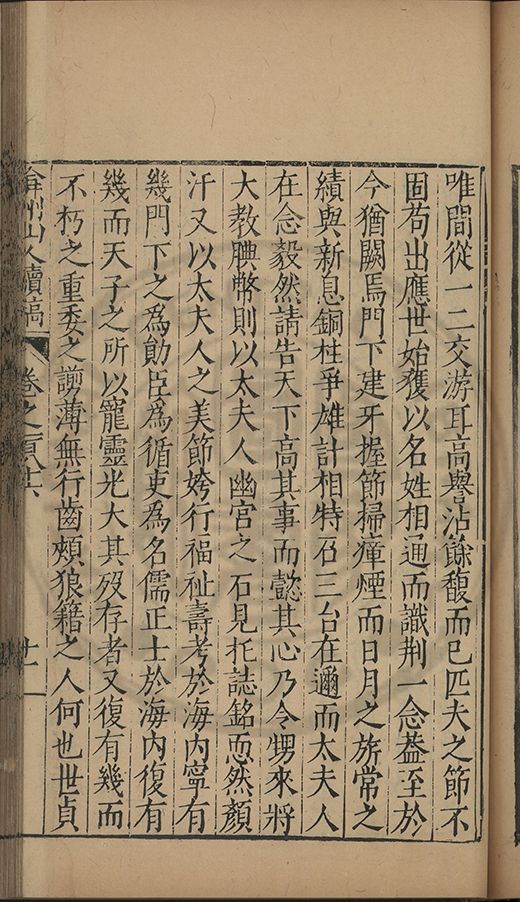 唯間從一二交游耳高譽沾餘馥而已匹夫之節不
固苟出應世始獲以名姓相通而識荆一念葢至於
今猶闕焉門下建牙握節掃瘴煙而日月之旂常之
績與新息銅柱爭雄計相特召三台在邇而太夫人
在念毅然請告天下高其事而懿其心乃令甥來將
大教腆幣則以太夫人幽宮之石見托誌銘恧然顏
汗又以太夫人之美節姱行福祉壽考於海内寧有
幾門下之為勛臣為循吏為名儒正士於海内復有
幾而天子之所以寵靈光大其歿存者又復有幾而
不朽之重委之謭薄無行齒頰狼籍之人何也世貞
弇州山人續稿 卷之